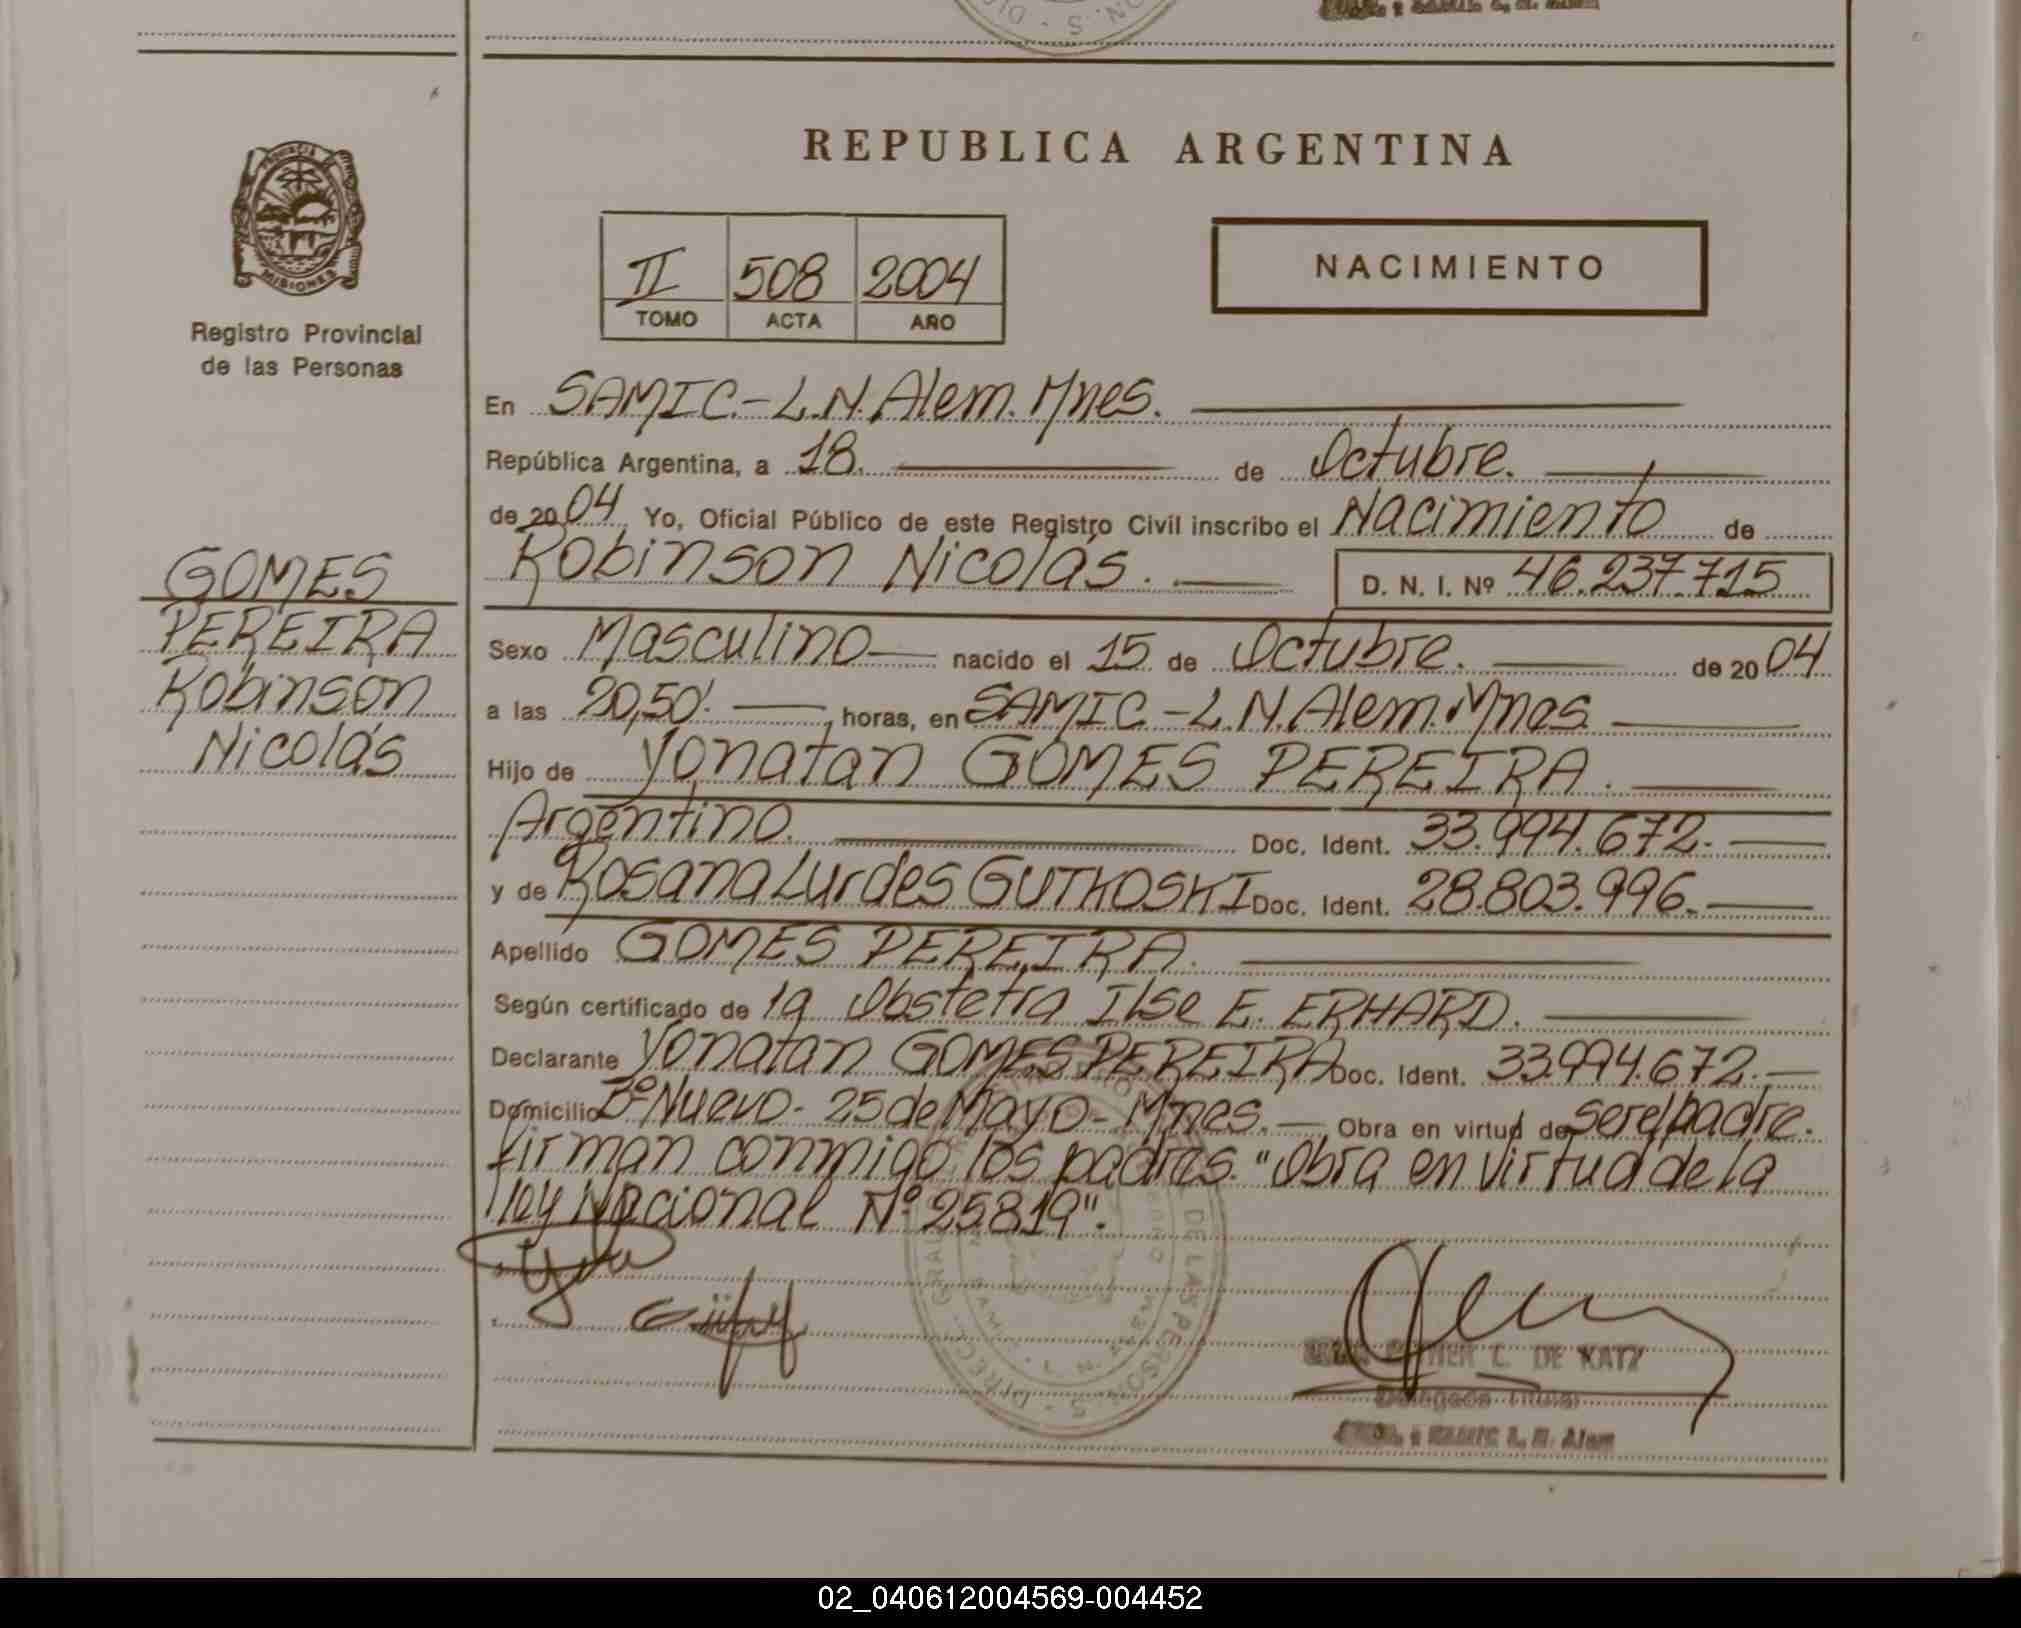 REPUBLICA ARGENTINA
PROVINCIA
MISIONES
Registro Provincial
de las Personas
II 508 2004
TOMO ACTA AÑO
NACIMIENTO
En SAMIC.-L.N.Alem.Mnes.
República Argentina, a 18. de Octubre.
de 2004 Yo, Oficial Público de este Registro Civil inscribo el Nacimiento de
Robinson Nicolás. D. N. I. Nº 46.237.715
GOMES
PEREIRA
Robinson
Nicolás
Sexo Masculino nacido el 15 de Octubre. de 2004
a las 20,50'. horas, en SAMIC-L.N.Alem.Mnes
Hijo de Yonatan GOMES PEREIRA.
Argentino. Doc. Ident. 33.994.672.
y de Rosana Lurdes GUTKOSKI Doc. Ident. 28.803.996.
Apellido GOMES PEREIRA.
Según certificado de la Obstetra Ilse E. ERHARD.
Declarante Yonatan GOMES PEREIRA Doc. Ident. 33.994.672.
Domicilio Bº Nuevo- 25 de Mayo- Mnes. Obra en virtud de ser el padre.
firman conmigo los padres. "Obra en virtud de la
ley Nacional Nº 25819".
DE LAS PERSON.S
DE KATZ
Delegada Titular
SAMIC L. N. Alem
02_040612004569-004452